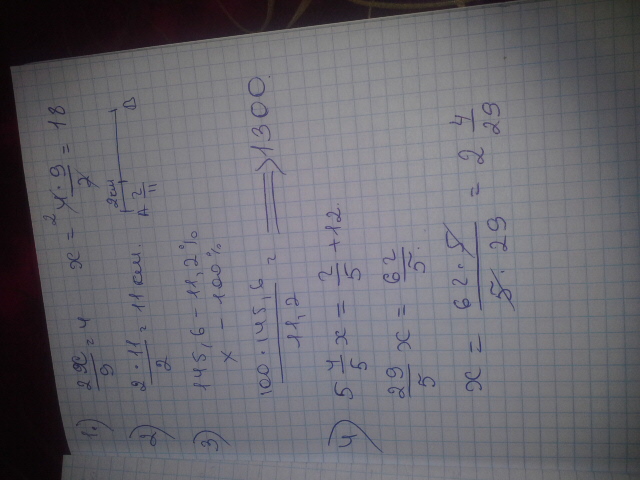 1.) 2x/9 = 4 x = 4·9/2 = 18
2) 2·11/2 = 11 см. 2см A 2/11 B
3) 145,6 - 11,2%
x - 100%
100·145,6/11,2 = 1300.
4) 5 4/5 x = 2/5 + 12
29/5 x = 62/5.
x = 62·5/5·29 = 2 4/29